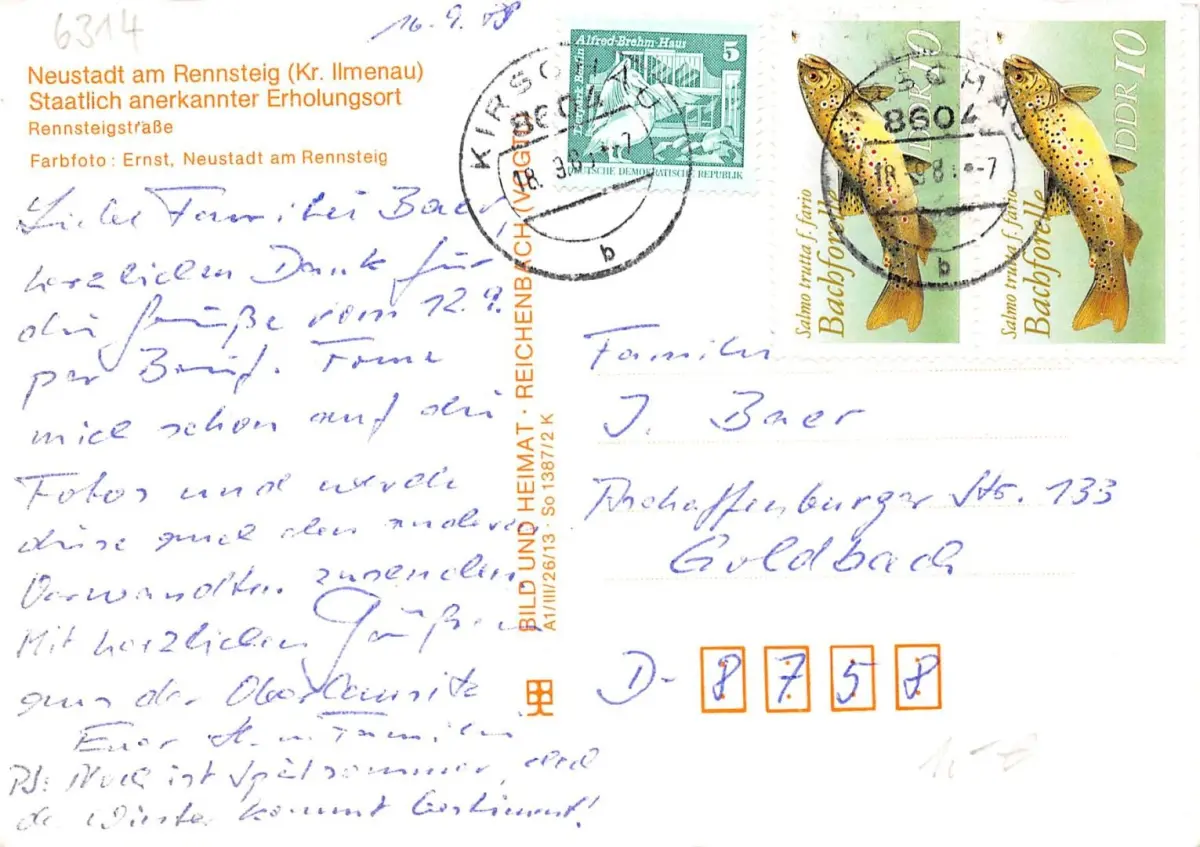 6314
16.9.88
Neustadt am Rennsteig (Kr. Ilmenau)
Staatlich anerkannter Erholungsort
Rennsteigstraße
Farbfoto: Ernst, Neustadt am Rennsteig
Liebe Familie Baer
herzlichen Dank für
die Grüße vom 12.9.
per Brief.
mich schon auf die
Fotos und werde
diese auch den anderen
Verwandten zusenden
Mit herzlichen Grüßen
aus der Oberlausitz
Euer H. u. Familie
PS: Noch ist Spätsommer, und
der Winter kommt bestimmt!
BILD UND HEIMAT · REICHENBACH (VOGTL)
A1/III/26/13 · So 1387/2 K
Alfred-Brehm-Haus
5
Tierpark Berlin
DEUTSCHE DEMOKRATISCHE REPUBLIK
KIRSCHAU
8604
18. 9.8
-7
b
DDR 10
Salmo trutta f. fario
Bachforelle
8604
18. 9.8
-7
b
DDR 10
Salmo trutta f. fario
Bachforelle
Familie
J. Baer
Aschaffenburger Str. 133
Goldbach
D- 8 7 5 8